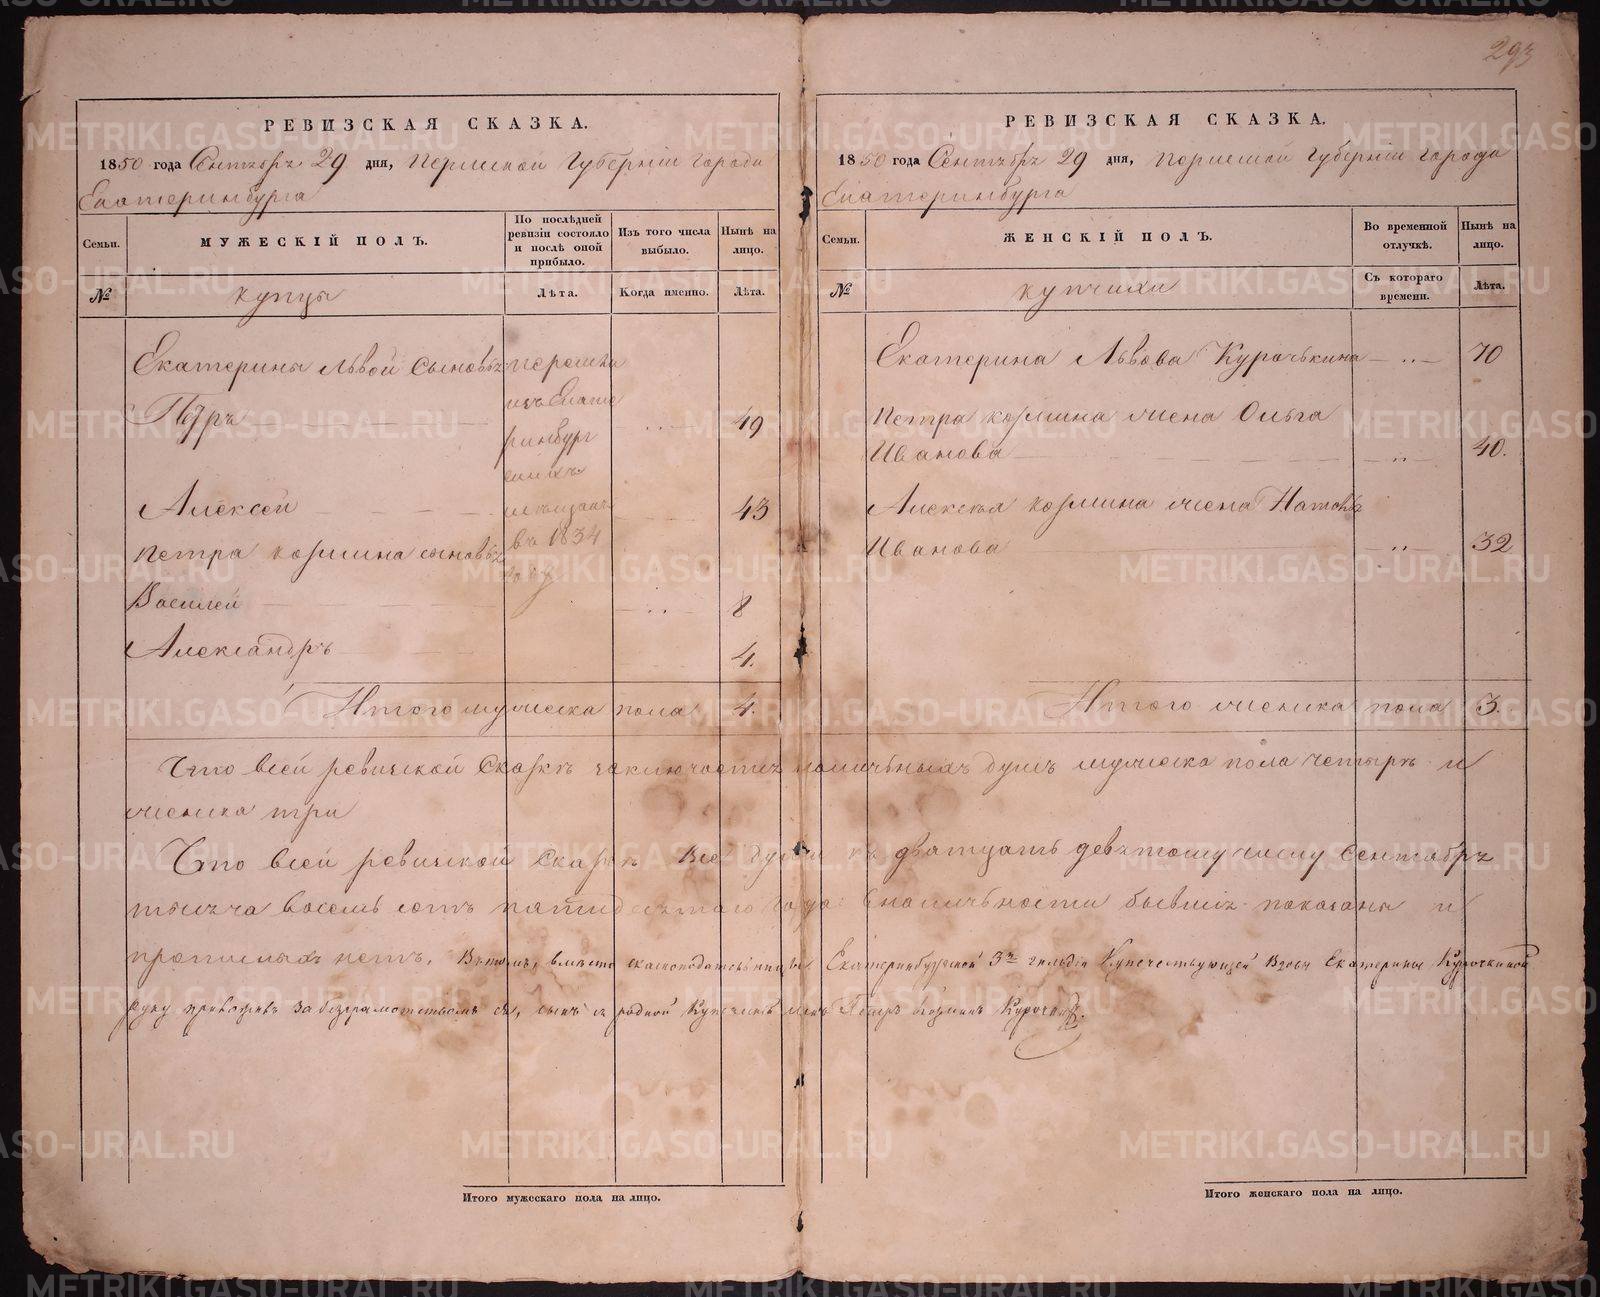 293
РЕВИЗСКАЯ СКАЗКА.
1850 года Сентябрѣ 29 дня, Пермской Губерніи города
Екатеринбурга
Семьи.
МУЖЕСКІЙ ПОЛЪ.
По послѣдней
ревизіи состояло
и послѣ оной
прибыло.
Изъ того числа
выбыло.
Нынѣ на
лицо.
№
купцы
Лѣта.
Когда именно.
Лѣта.
Екатерины Львой Сыновья
Петръ 49
Алексей 43
Петра козмина сыновья
Василей 8
Александръ 4.
перешли
изъ Екате
ринбург
скихъ
мещанъ
въ 1834
году
Итого мужеска пола 4.
РЕВИЗСКАЯ СКАЗКА.
1850 года Сентябрѣ 29 дня, Пермской Губерніи города
Екатеринбурга
Семьи.
ЖЕНСКІЙ ПОЛЪ.
Во временной
отлучкѣ.
Нынѣ на
лицо.
№
купчихи
Съ котораго
времени.
Лѣта.
Екатерина Львова Курочькина 70
Петра козмина жена Ольга
Иванова 40.
Алексея козмина жена Наталья
Иванова 32
Итого женска пола 3.
Что всей ревизской Сказкѣ заключается наличныхъ душъ мужеска пола четыре и
женска три
Что всей ревизской Сказкѣ Все души къ дватцать девятому числу Сентября
тысяча восемь сотъ пятидесятаго года вналичьности бывшие показаны и
прописныхъ нетъ, Вътомъ, вместо Екатеринбургской 3й гильдіи Купечествующей Вдовы Екатерины Курочкиной
руку приложилъ за безграмотством ея, сынъ ея родной Петръ Козминъ Курочкинъ.
Итого мужескаго пола на лицо.
Итого женскаго пола на лицо.
METRIKI.GASO-URAL.RU